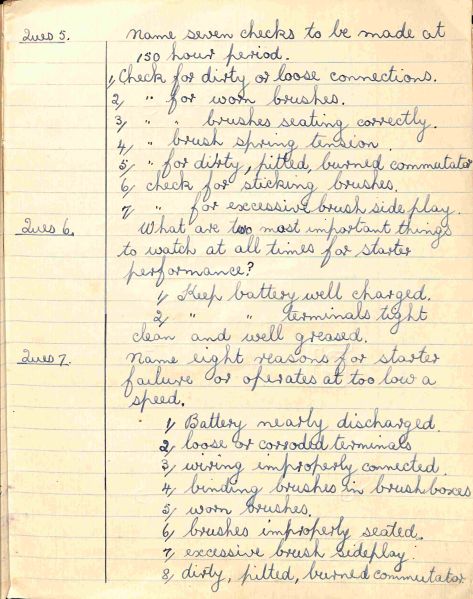 Ques 5. Name seven checks to be made at
150 hour period.
1, Check for dirty or loose connections.
2, " for worn brushes.
3, " " brushes seating correctly.
4, " brush spring tension.
5, " for dirty, pitted, burned commutator
6, check for sticking brushes.
7, " for excessive brush side play.
Ques 6. What are two most important things
to watch at all times for starter
performance?
1, Keep battery well charged.
2, " " terminals tight
clean and well greased.
Ques 7. Name eight reasons for starter
failure or operates at too low a
speed.
1, Battery nearly discharged.
2, loose or corroded terminals
3, wiring improperly connected.
4, binding brushes in brushboxes
5, worn brushes.
6, brushes improperly seated.
7, excessive brush sideplay.
8, dirty, pitted, burned commutator